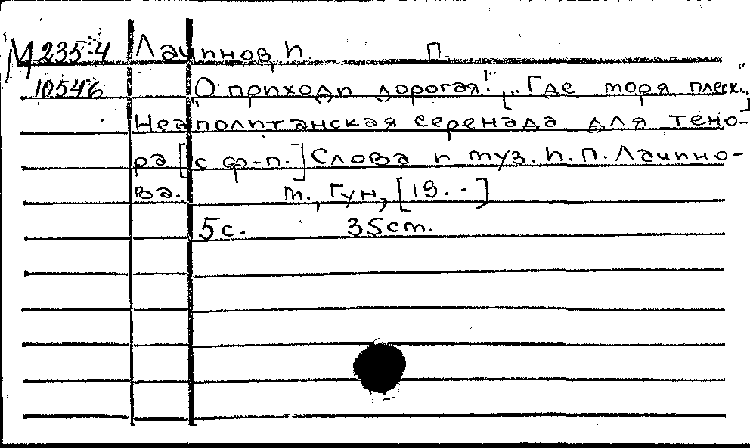 М 235-4 Лаипнов П. П.
10546 "О приходи дорогая!" [„Где моря плеск..."]
Неаполитанская серенада для тено-
ра [с ф-п.] Слова и муз. П. П. Лаипно-
ва. М., Гун, [19 . . -]
5с. 35см.